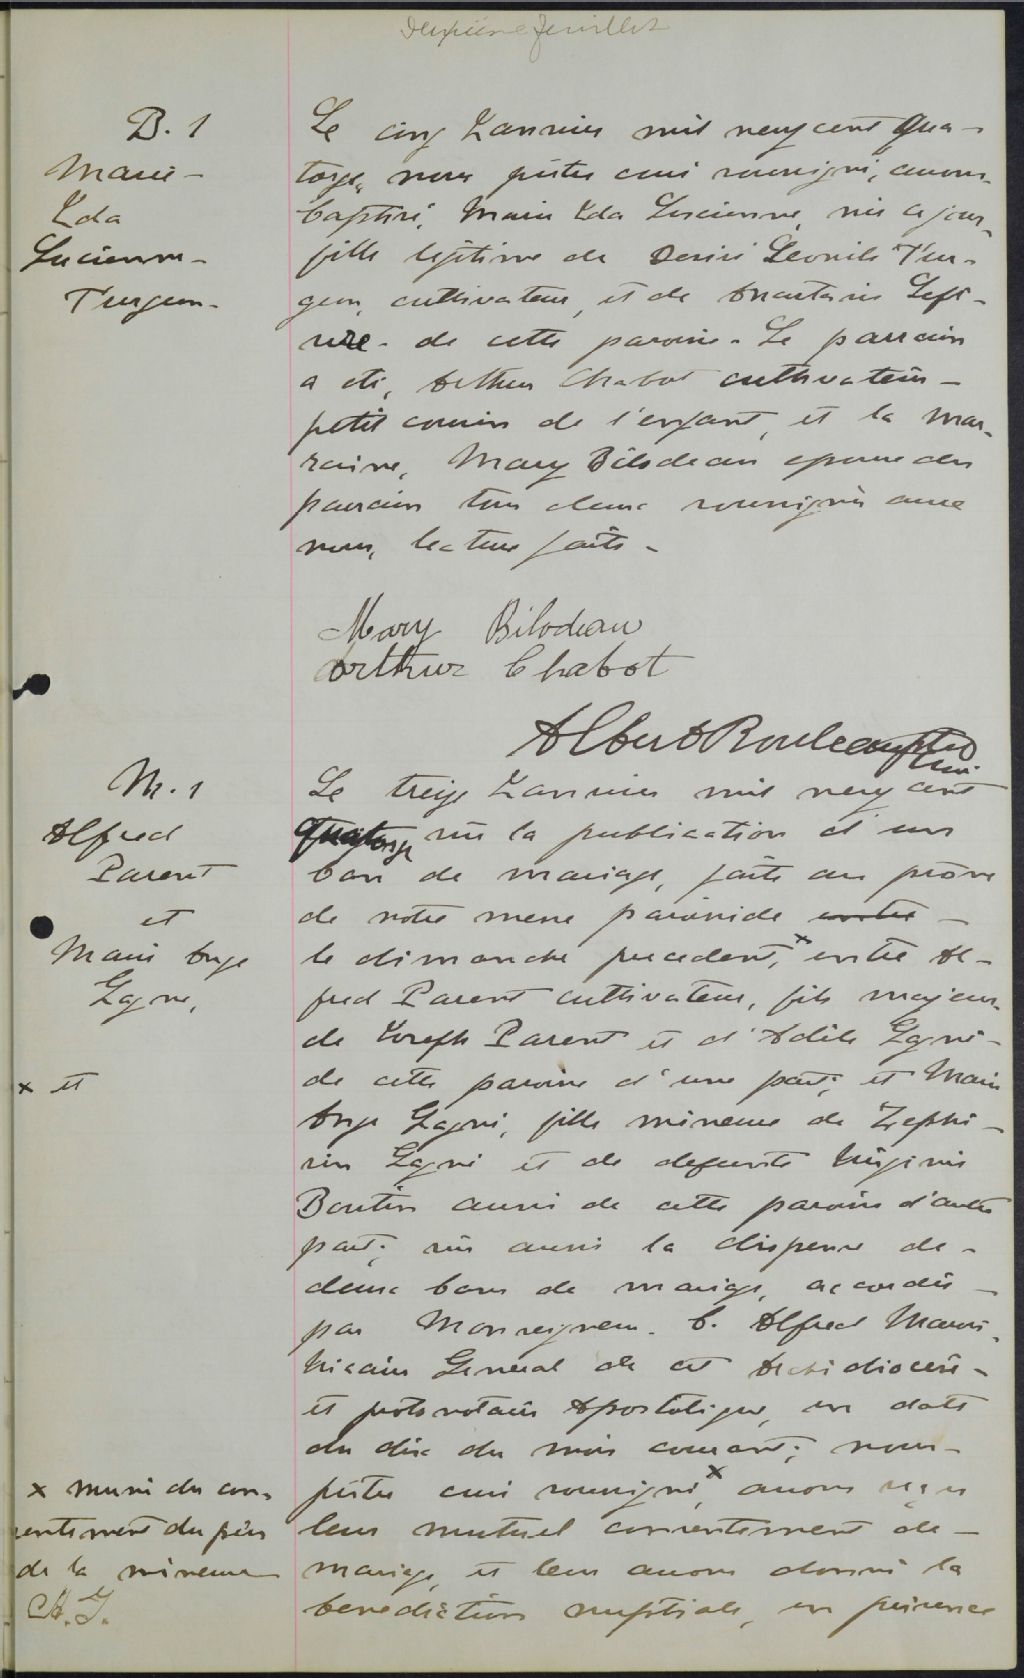 Deuxième feuillet
B. 1
Marie-
Ida
Lucienne-
Turgeon-
Le cinq Janvier mil neuf cent qua-
torze, nous prêtre curé soussigné, avons
baptisé, Marie Ida Lucienne, née ce jour,
fille légitime de Désiré Léonile Tur-
geon, cultivateur, et de Anastasie Lefe-
bvre - de cette paroisse - Le parrain
a été, Arthur Chabot cultivateur -
petit cousin de l'enfant, et la mar-
raine, Mary Bilodeau épouse du
parrain tous deux soussignés avec
nous, lecture faite -
Mary Bilodeau
Arthur Chabot
Albert Rouleau ptre
curé
M. 1
Alfred
Parent
et
Marie Ange
Gagné,
Le treize Janvier mil neuf cent
quatorze vu la publication d'un
ban de mariage, faite au prône
de notre messe paroissiale entre -
le dimanche précédent, x entre Al-
fred Parent cultivateur, fils majeur
de Joseph Parent et d'Adèle Gagné -
x et
de cette paroisse d'une part; et Marie
Ange Gagné, fille mineure de Zéphi-
rin Gagné et de défunte Virginie
Boutin aussi de cette paroisse d'autre
part; vu aussi la dispense de -
deux bans de mariage, accordée -
par Monseigneur C. Alfred Marois,
Vicaire Général de cet Archidiocèse -
et protonotaire Apostolique, en date
du dix du mois courant; nous -
x muni du con-
sentement du père
de la mineure
prêtre curé soussigné, x avons reçu
leur mutuel consentement de -
mariage, et leur avons donné la
bénédiction nuptiale, en présence